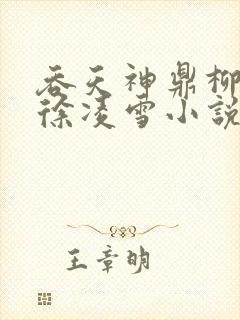 吞天神鼎柳
徐凌雪小說
王章明